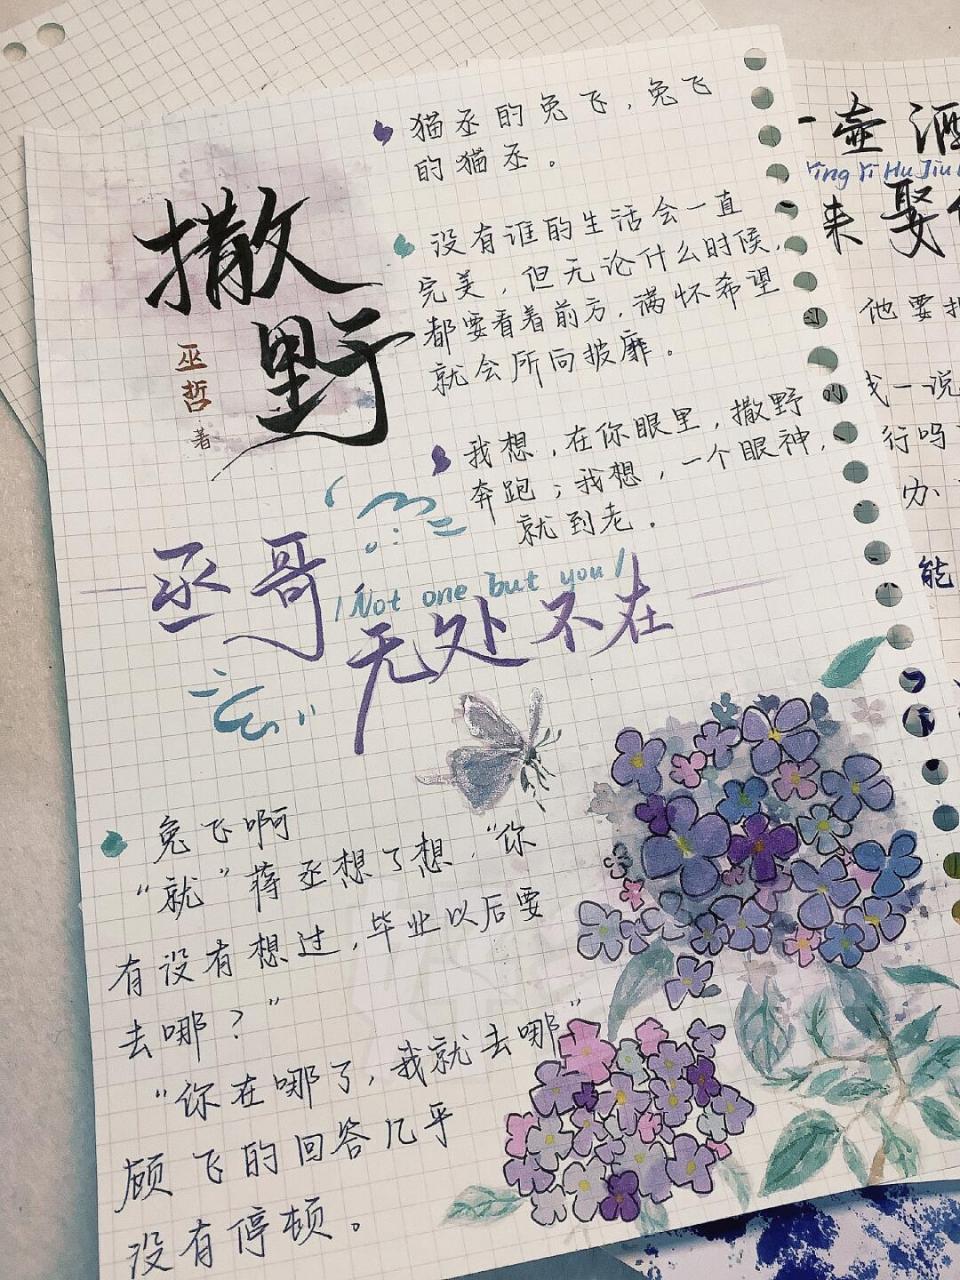 撒
野
巫哲
著
猫丞的兔飞，兔飞
的猫丞。
没有谁的生活会一直
完美，但无论什么时候，
都要看着前方，满怀希望
就会所向披靡。
我想，在你眼里，撒野
奔跑；我想，一个眼神，
就到老。
丞哥
/Not one but you/
无处不在
兔飞啊
“就”蒋丞想了想，“你
有没有想过，毕业以后要
去哪？”
“你在哪了，我就去哪”
顾飞的回答几乎
没有停顿。
一壶酒
Ying Yi Hu Jiu
来娶
他要
找一说
行吗
办
能